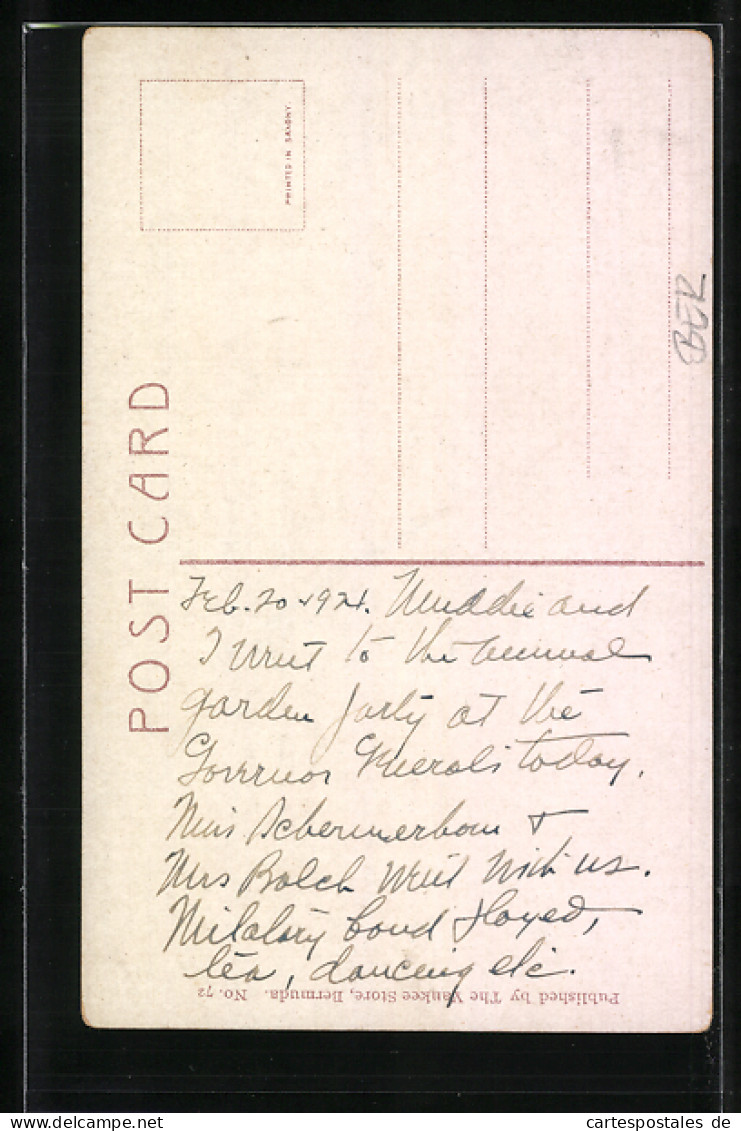 PRINTED IN SAXONY.
BER
POST CARD
Feb. 20 1921. Muddie and
I went to the annual
garden party at the
Governor Generals today.
Miss Schermerhorn +
Mrs Balch went with us.
Militaty band played,
tea, dancing etc.
Published by The Yankee Store, Bermuda. No. 72
cartespostales de